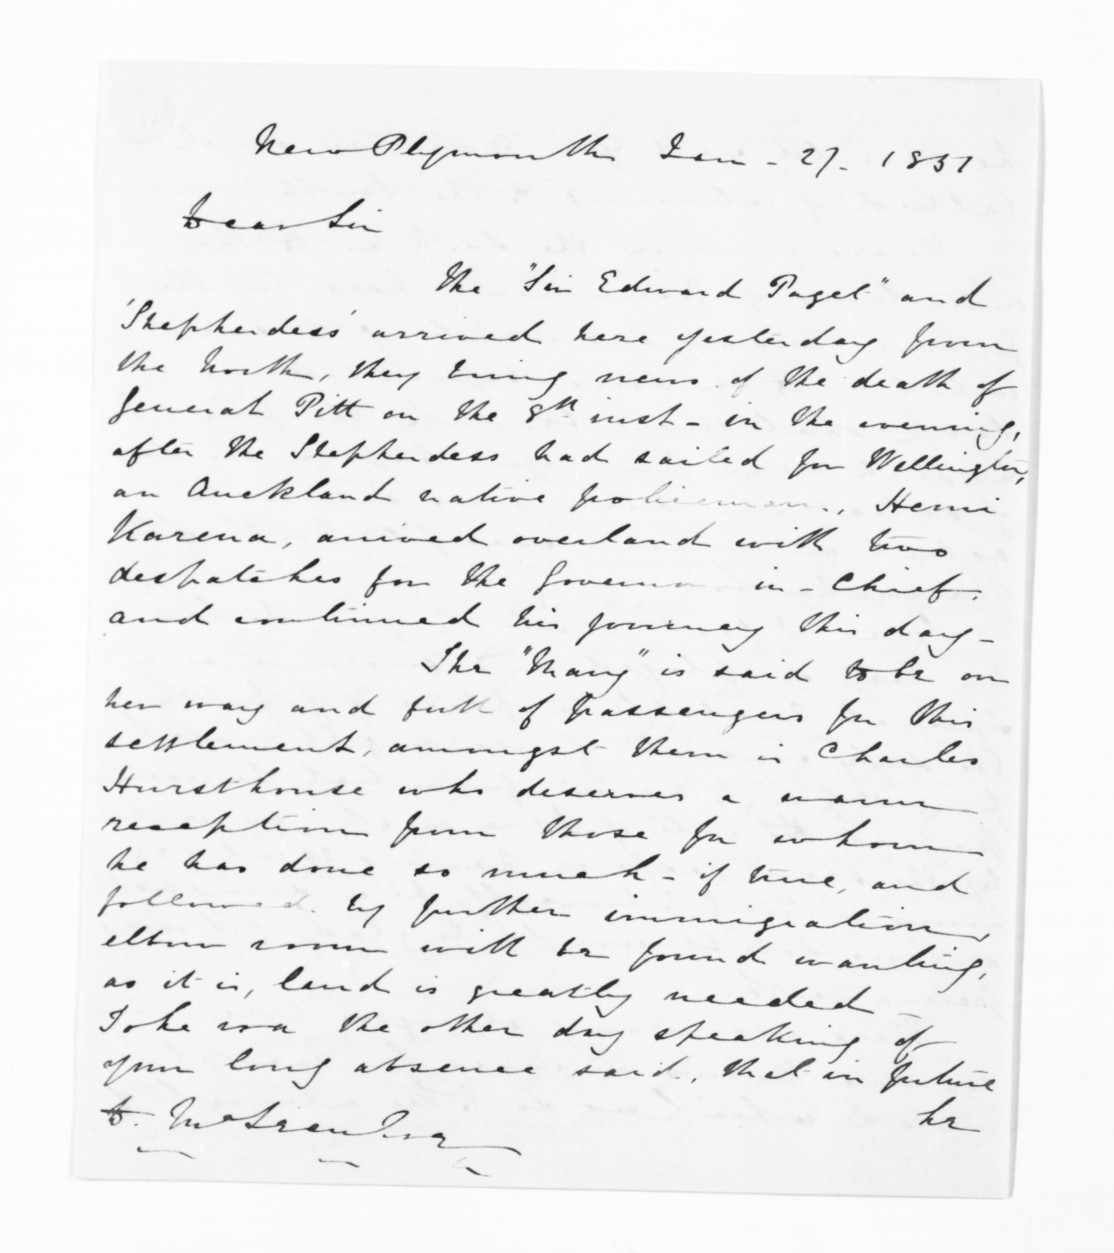 New Plymouth Jan - 27 - 1851
Dear Sir
The "Sir Edward Paget" and
'Shepherdess' arrived here yesterday from
the North, they bring news of the death of
General Pitt on the 8th inst - in the evening,
after the Shepherdess had sailed for Wellington,
an Auckland native policeman, Hemi
Karena, arived overland with two
despatches for the Governor in - Chief.
and continued his journey this day -
The "Mary" is said to be on
her way and full of passengers for this
settlement, amongst them is Charles
Hursthouse who deserves a warm
reception from those for whom
he has done so much - if true, and
followed by further immigration,
elbow room will be found wanting,
as it is, land is greatly needed
Ioke wa the other day speaking of
your long absence said, that in future
he
D. McLean Esqr